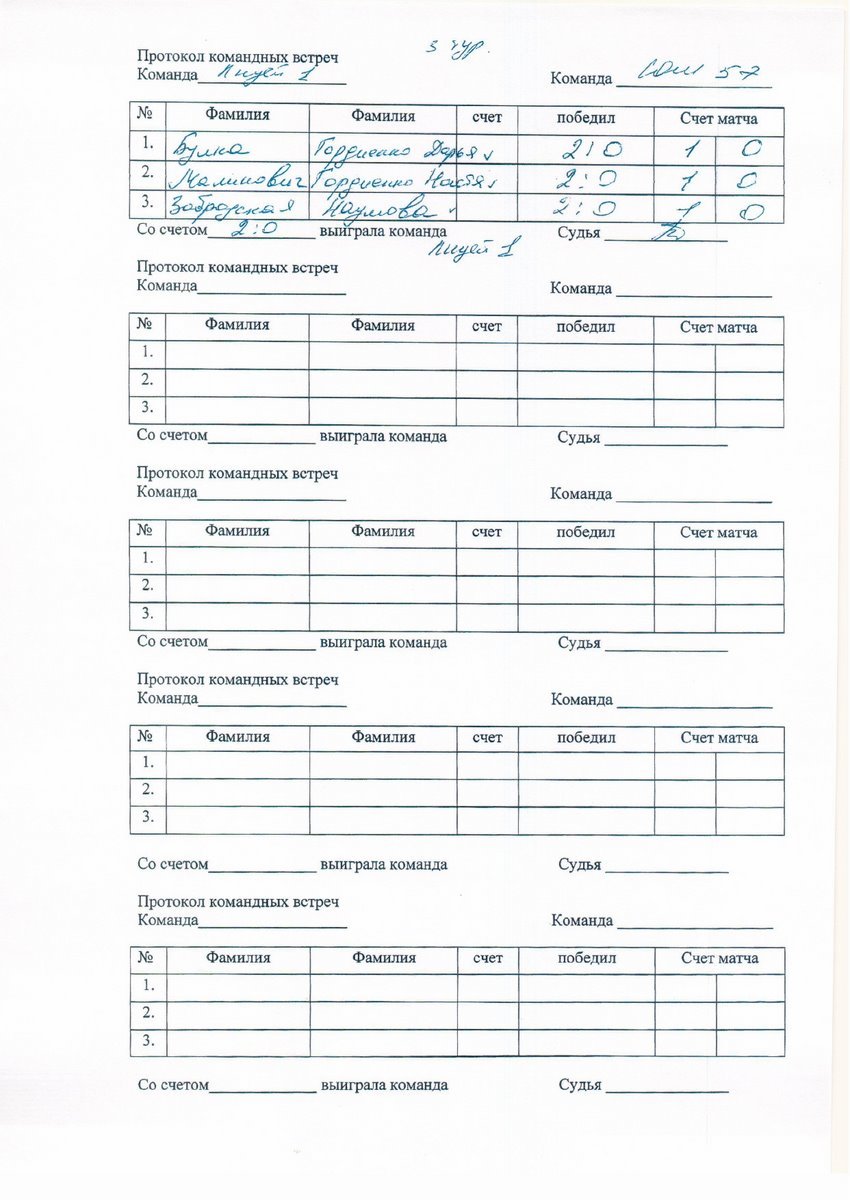 3 тур.
Протокол командных встреч
Команда Лицей 1 Команда СОШ 57
№ Фамилия Фамилия счет победил Счет матча
1. Булка Гордиенко Дарья 2:0 1 0
2. Малинович Гордиенко Настя 2:0 1 0
3. Забродская Наумова 2:0 1 0
Со счетом 2:0 выиграла команда Лицей 1 Судья
Протокол командных встреч
Команда Команда
№ Фамилия Фамилия счет победил Счет матча
1.
2.
3.
Со счетом выиграла команда Судья
Протокол командных встреч
Команда Команда
№ Фамилия Фамилия счет победил Счет матча
1.
2.
3.
Со счетом выиграла команда Судья
Протокол командных встреч
Команда Команда
№ Фамилия Фамилия счет победил Счет матча
1.
2.
3.
Со счетом выиграла команда Судья
Протокол командных встреч
Команда Команда
№ Фамилия Фамилия счет победил Счет матча
1.
2.
3.
Со счетом выиграла команда Судья